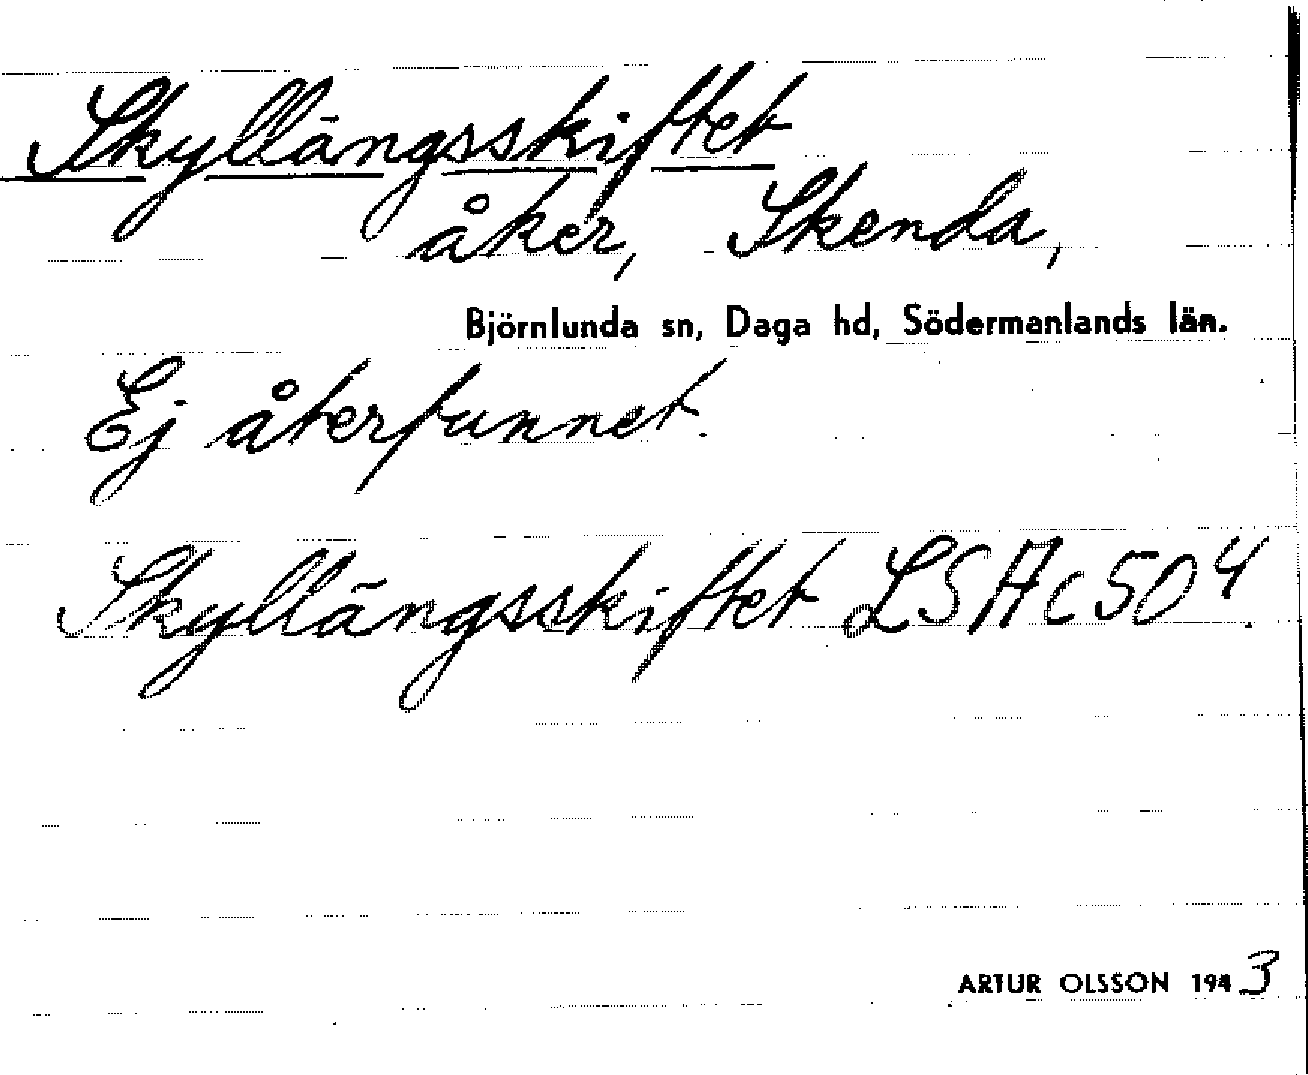 Skyllängsskiftet
åker, Skenda,
Björnlunda sn, Daga hd, Södermanlands län.
Ej återfunnet.
Skyllängsskiftet LSA C 50 4.
ARTUR OLSSON 1943